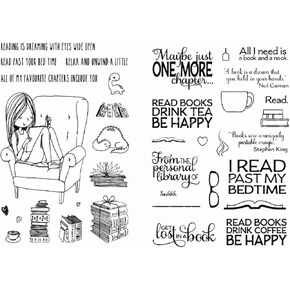 READING IS DREAMING WITH EYES WIDE OPEN
READ PAST YOUR BED TIME   RELAX AND UNWIND A LITTLE
ALL OF MY FAVOURITE CHAPTERS INCLUDE YOU
Maybe just
ONE MORE
chapter...
All I need is
a book and a nook.
"A book is a dream that
you hold in your hands."
Neil Gaiman
READ BOOKS
DRINK TEA
BE HAPPY
Read.
"Books are a uniquely
portable magic"
Stephen King
From the
personal
library of
I READ
PAST MY
BEDTIME
Get
lost in a
book
READ BOOKS
DRINK COFFEE
BE HAPPY